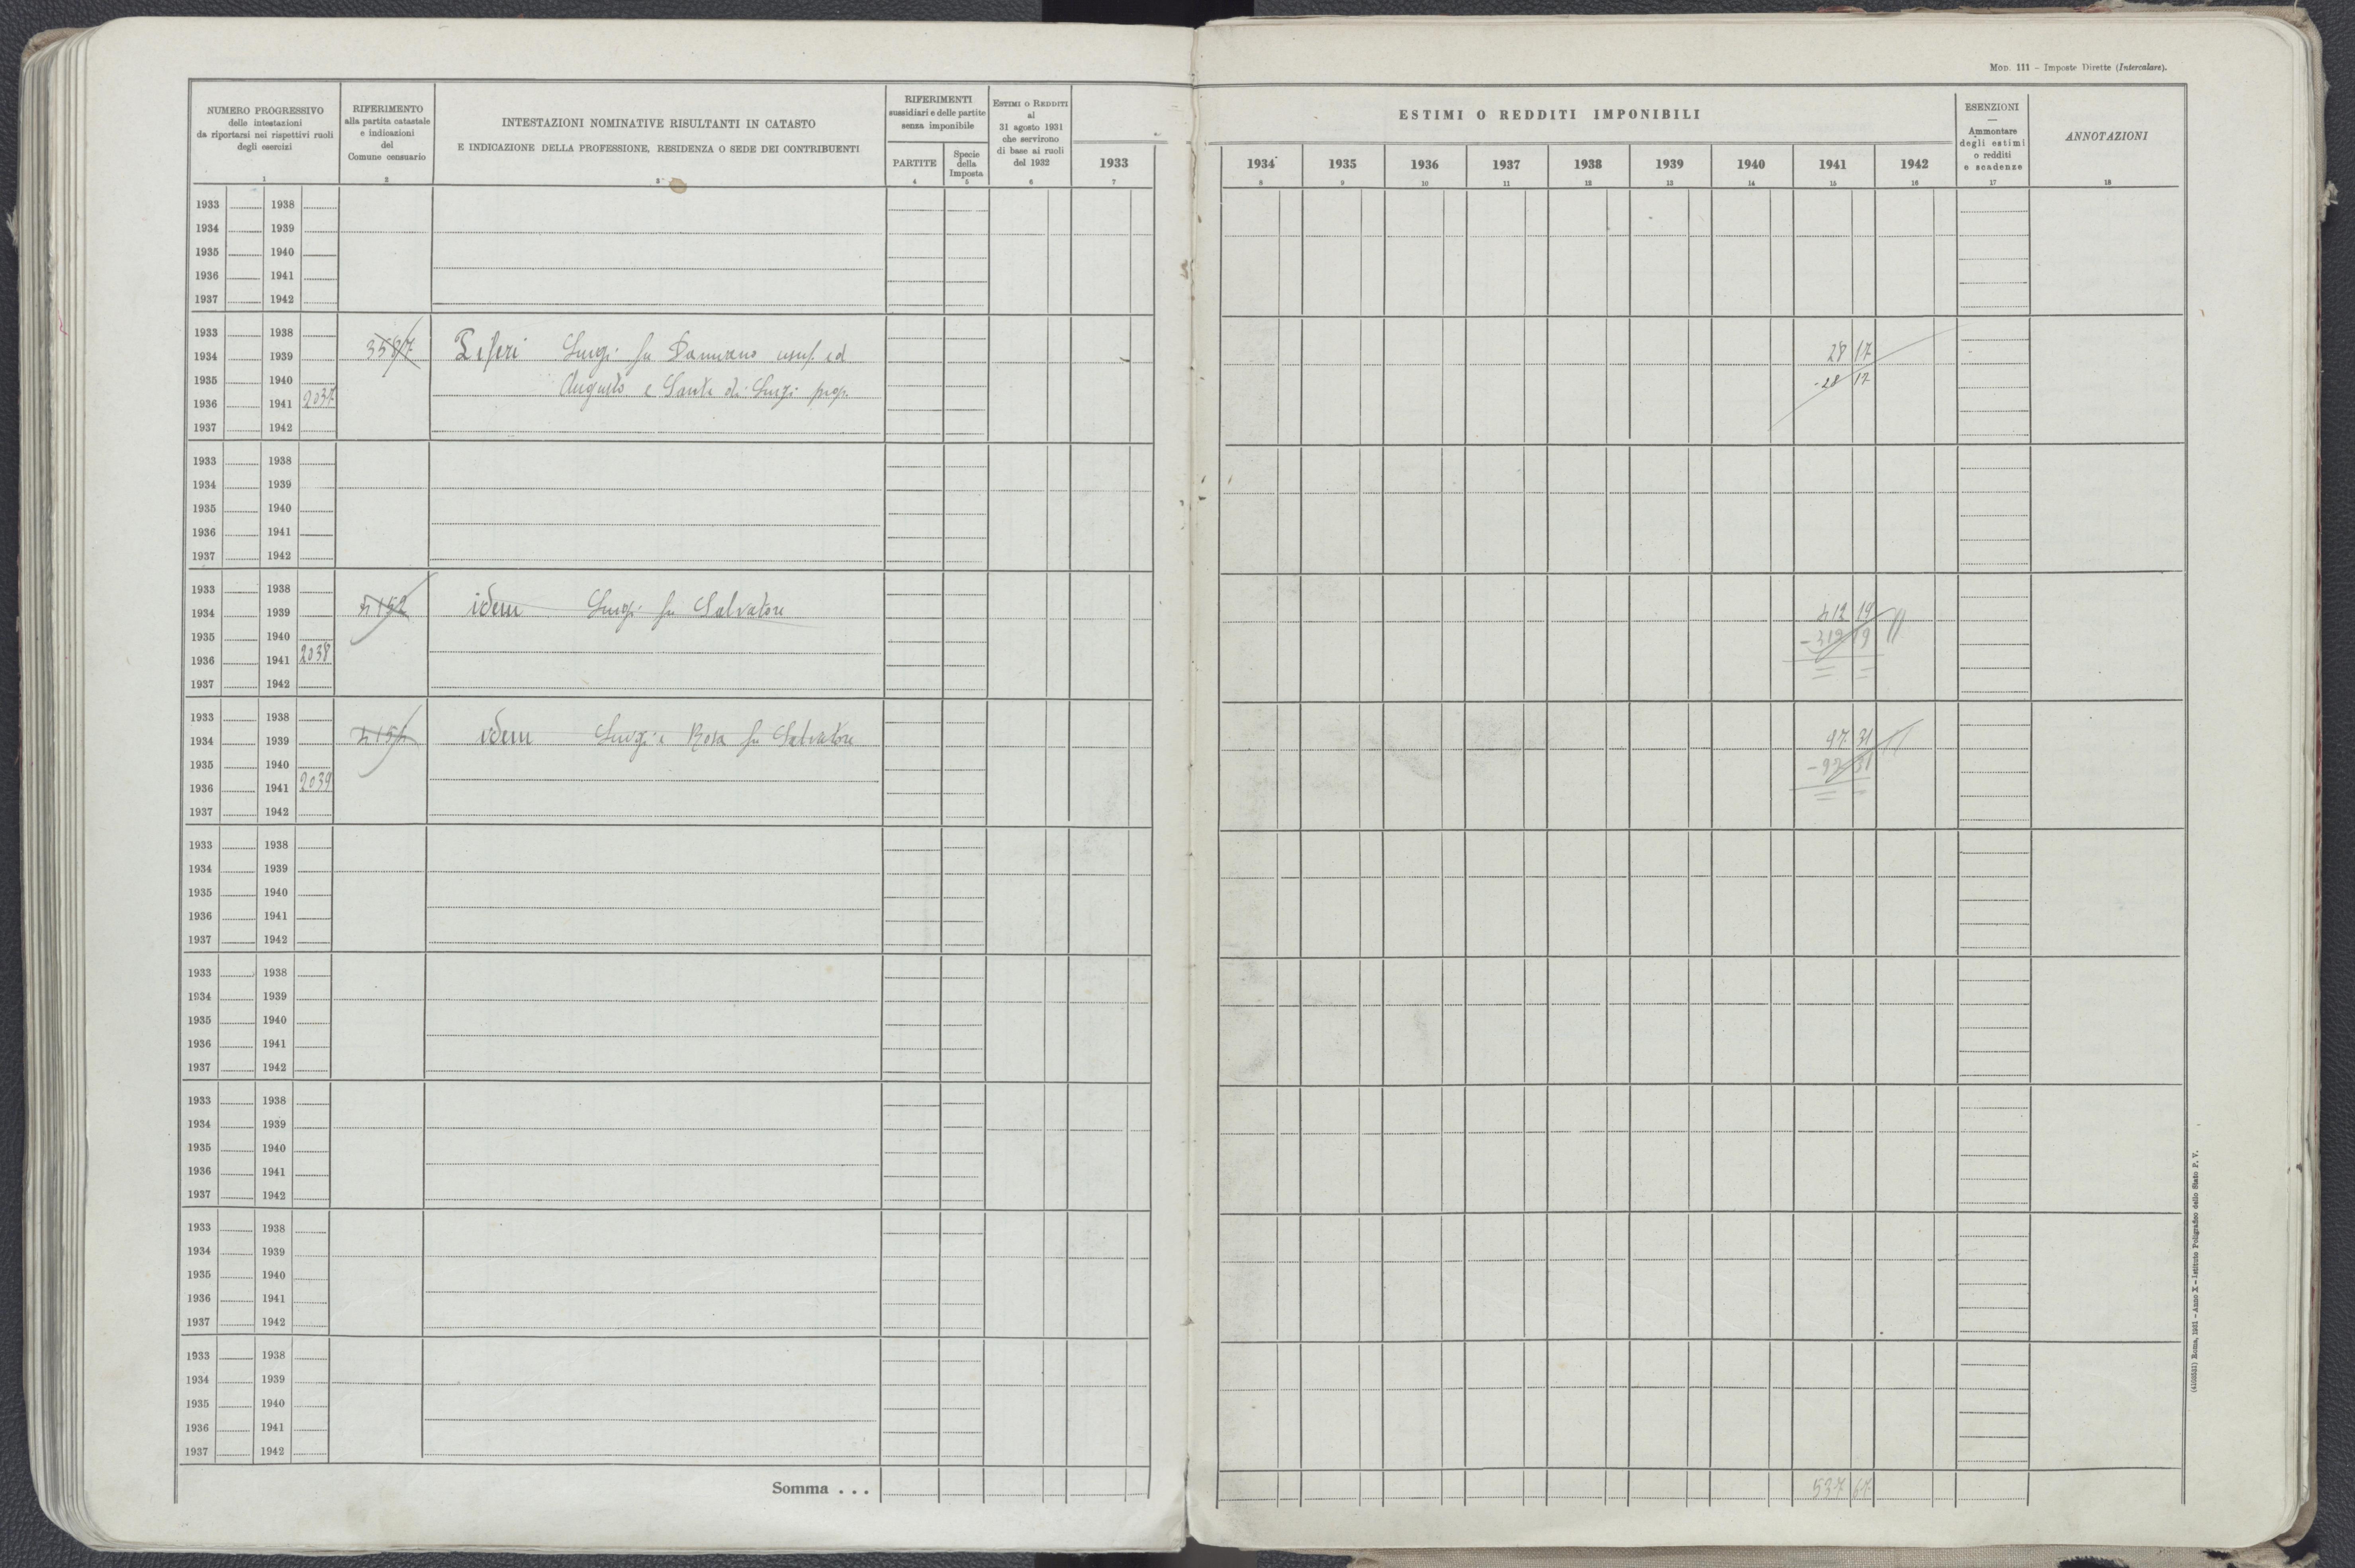 MOD. 111 – Imposte Dirette (Intercalare).
NUMERO PROGRESSIVO
delle intestazioni
da riportarsi nei rispettivi ruoli
degli esercizi
1
RIFERIMENTO
alla partita catastale
e indicazioni
del
Comune censuario
2
INTESTAZIONI NOMINATIVE RISULTANTI IN CATASTO
E INDICAZIONE DELLA PROFESSIONE, RESIDENZA O SEDE DEI CONTRIBUENTI
3
RIFERIMENTI
sussidiari e delle partite
senza imponibile
PARTITE
4
Specie
della
Imposta
5
ESTIMI O REDDITI
al
31 agosto 1931
che servirono
di base ai ruoli
del 1932
6
1933
7
ESTIMI O REDDITI IMPONIBILI
1934 1935 1936 1937 1938 1939 1940 1941 1942
8 9 10 11 12 13 14 15 16
ESENZIONI
—
Ammontare
degli estimi
o redditi
e scadenze
17
ANNOTAZIONI
18
1933 1938
1934 1939
1935 1940
1936 1941
1937 1942
1933 1938
1934 1939 3587 Luigi fu Damiano usuf. ed 28 17
1935 1940 Augusto e Sante di Luigi propr. -28 17
1936 1941 2037
1937 1942
1933 1938
1934 1939
1935 1940
1936 1941
1937 1942
1933 1938
1934 1939 idem Luigi fu Salvatore 412 19
1935 1940
1936 1941 2038
1937 1942
1933 1938
1934 1939 idem Luigi e Rosa fu Salvatore 97 31
1935 1940 -97 31
1936 1941 2039
1937 1942
1933 1938
1934 1939
1935 1940
1936 1941
1937 1942
1933 1938
1934 1939
1935 1940
1936 1941
1937 1942
1933 1938
1934 1939
1935 1940
1936 1941
1937 1942
1933 1938
1934 1939
1935 1940
1936 1941
1937 1942
1933 1938
1934 1939
1935 1940
1936 1941
1937 1942
Somma . . . 537 67
(4103531) Roma, 1931 – Anno X – Istituto Poligrafico dello Stato P. V.